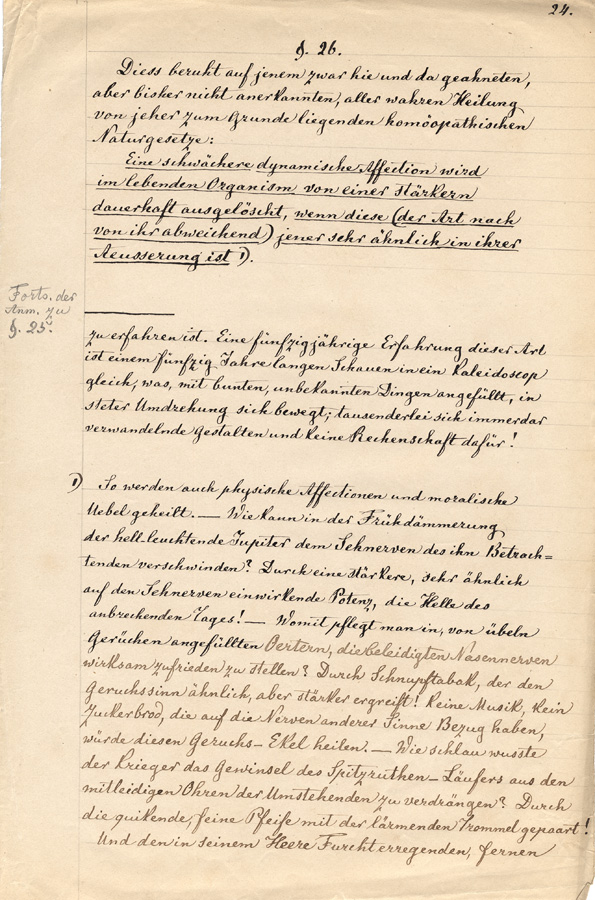 24.
§. 26.
Diess beruht auf jenem zwar hie und da geahneten,
aber bisher nicht anerkannten, aller wahren Heilung
von jeher zum Grunde liegenden homöopathischen
Naturgesetze:
Eine schwächere dynamische Affection wird
im lebenden Organism von einer stärkern
dauerhaft ausgelöscht, wenn diese (der Art nach
von ihr abweichend) jener sehr ähnlich in ihrer
Aeusserung ist 1).
Forts. der
Anm. zu
§. 25.
zu erfahren ist. Eine fünfzigjährige Erfahrung dieser Art
ist einem fünfzig Jahre langen Schauen in ein Kaleidoscop
gleich, was, mit bunten, unbekannten Dingen angefüllt, in
steter Umdrehung sich bewegt; tausenderlei sich immerdar
verwandelnde Gestalten und keine Rechenschaft dafür!
1) So werden auch physische Affectionen und moralische
Uebel geheilt. — Wie kann in der Frühdämmerung
der hell-leuchtende Jupiter dem Sehnerven des ihn Betrach=
tenden verschwinden? Durch eine stärkere, sehr ähnlich
auf den Sehnerven einwirkende Potenz, die Helle des
anbrechenden Tages! — Womit pflegt man in, von übeln
Gerüchen angefüllten Oertern, die beleidigten Nasennerven
wirksam zufrieden zu stellen? Durch Schnupftabak, der den
Geruchssinn ähnlich, aber stärker ergreift! Keine Musik, kein
Zuckerbrod, die auf die Nerven anderer Sinne Bezug haben,
würde diesen Geruchs-Ekel heilen. — Wie schlau wusste
der Krieger das Gewinsel des Spitzruthen-Läufers aus den
mitleidigen Ohren der Umstehenden zu verdrängen? Durch
die quikende, feine Pfeife mit der lärmenden Trommel gepaart!
Und den in seinem Heere Furcht erregenden, fernen